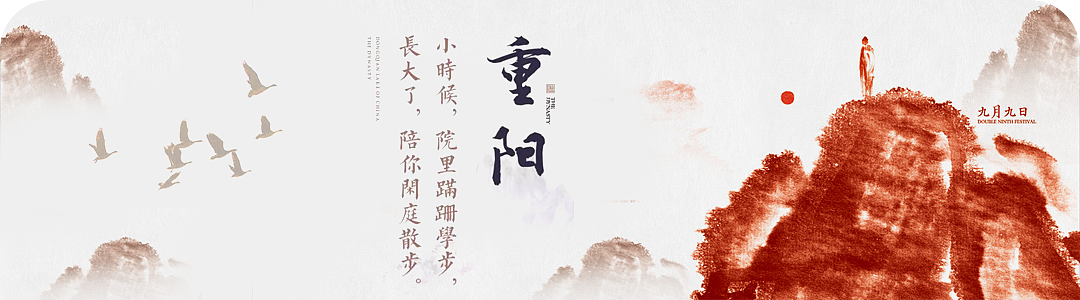 重阳
THE
DYNASTY
小時候，院里蹣跚學步，
長大了，陪你閑庭散步。
DONGQIAN LAKE OF CHINA
THE DYNASTY
九月九日
DOUBLE NINTH FESTIVAL